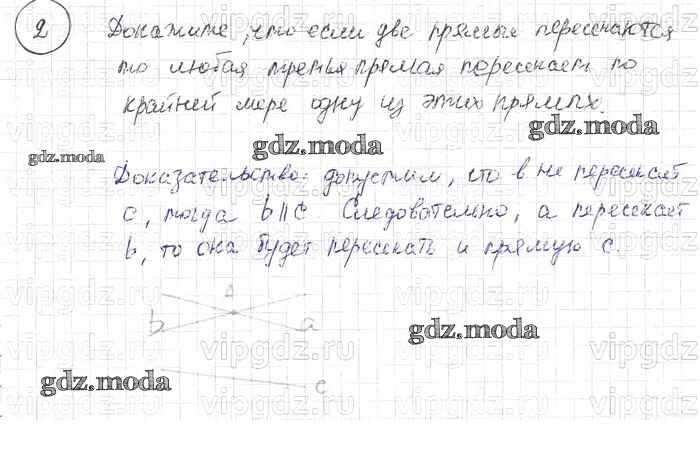 2 Докажите, что если две прямые пересекаются
то любая третья прямая пересекает по
крайней мере одну из этих прямых.
gdz.moda
gdz.moda
gdz.moda
Доказательство: допустим, что в не пересекает
c, тогда b || c. Следовательно, а пересекает
b, то она будет пересекать и прямую c.
vipgdz.ru vipgdz.ru vipgdz.ru
b a
gdz.moda
vipgdz.ru vipgdz.ru vipgdz.ru
gdz.moda
c
vipgdz.ru vipgdz.ru vipgdz.ru